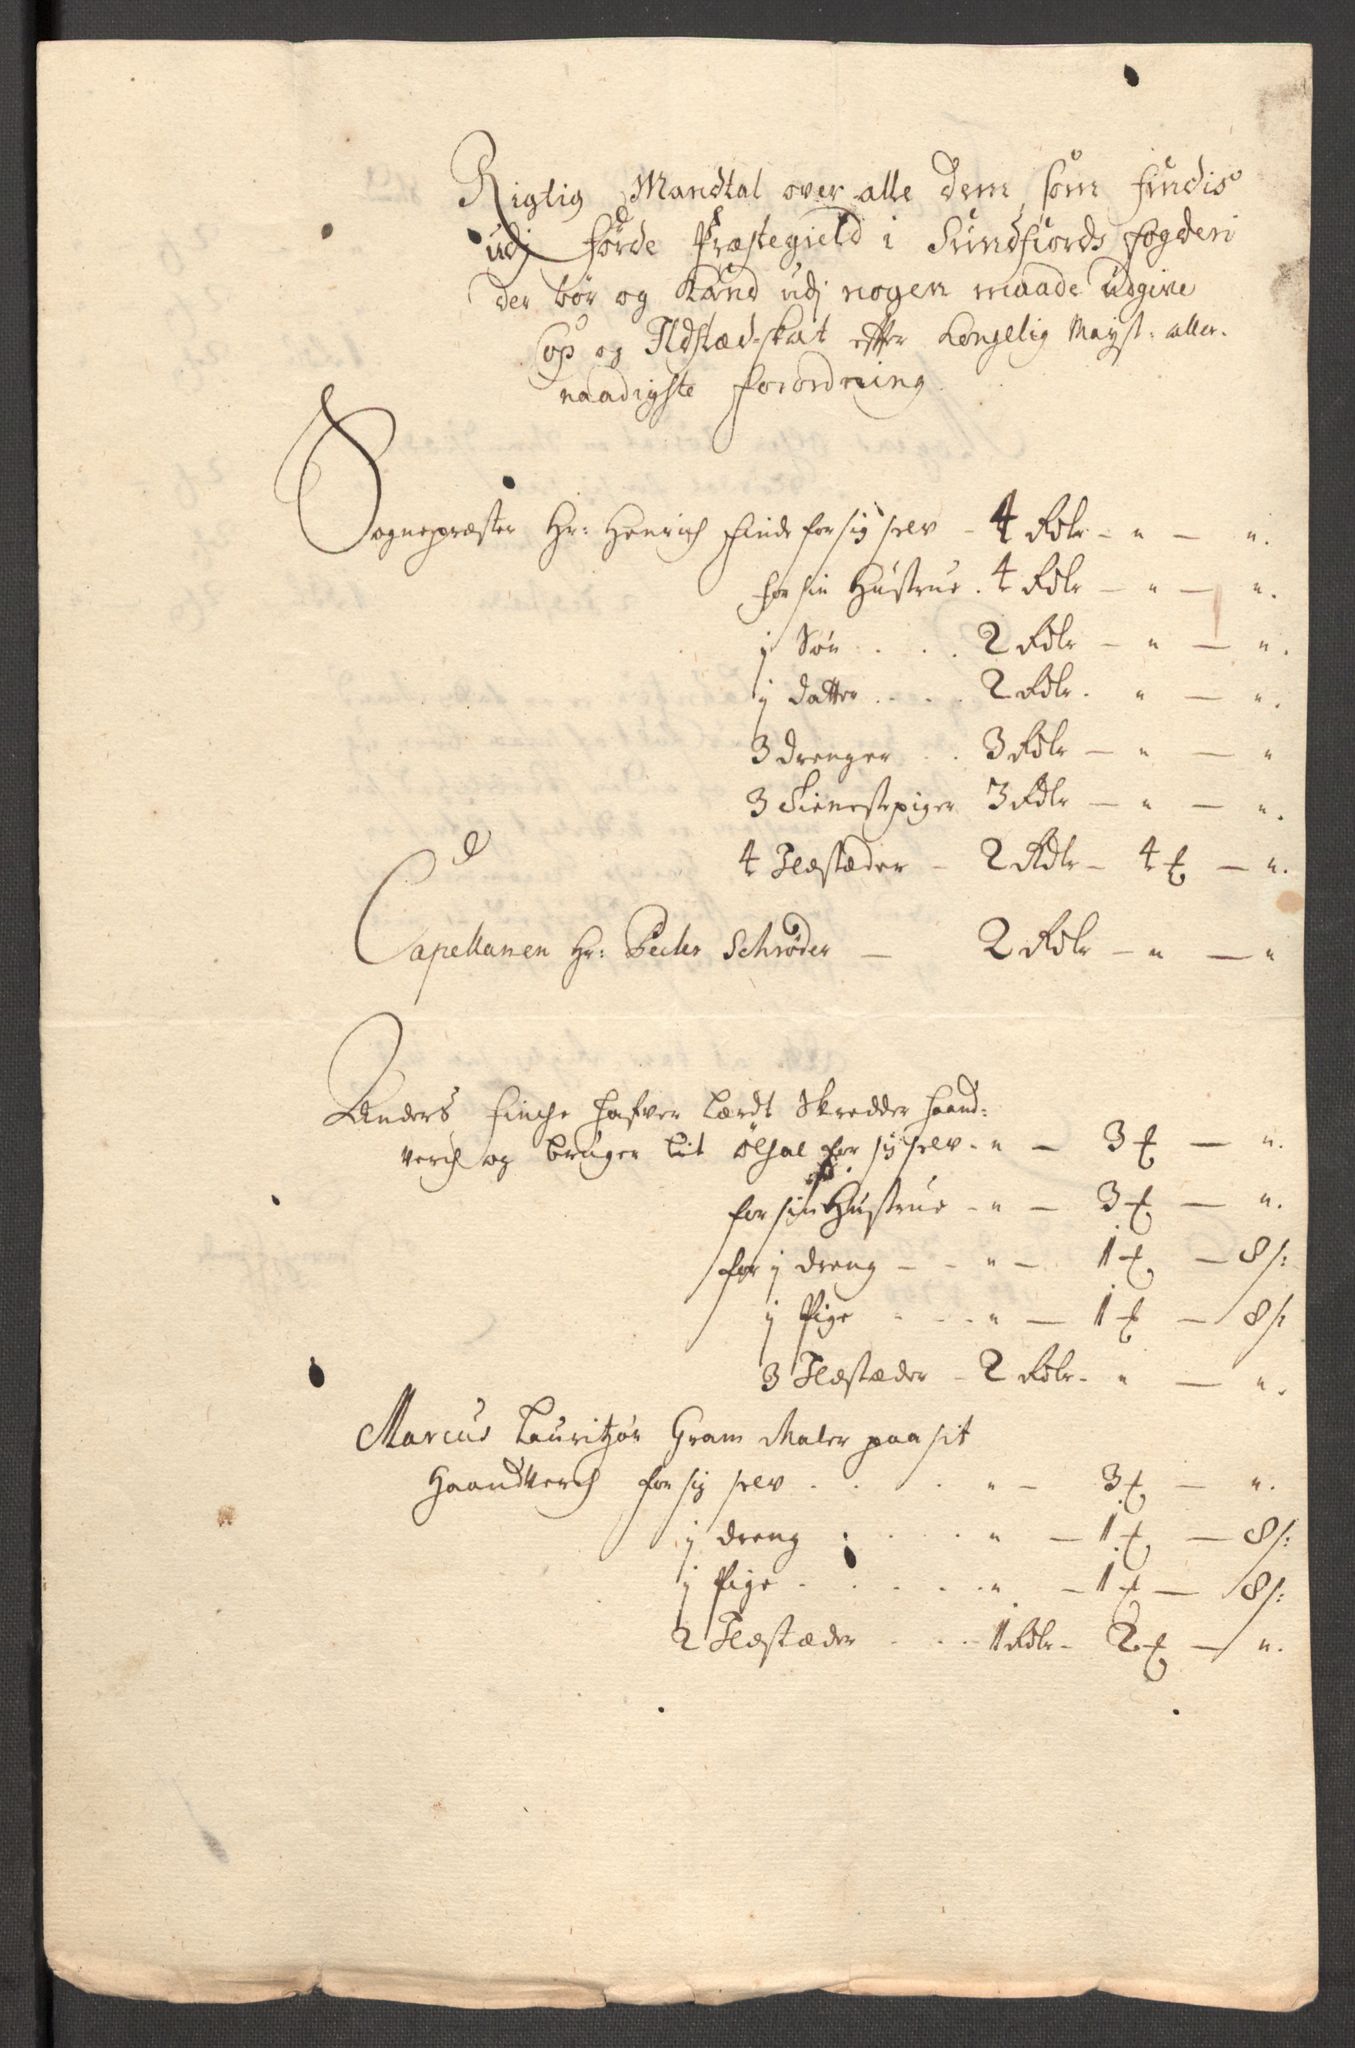 Rigtig Mandtal over alle dem, som findis
udj Førde Præstegield i Sundfiords fogderi
der bør og kand udj nogen maade udgive
Cop og Ildsted-skat effter Kongelig Mayst: aller-
naadigste forordning.
Sognepræsten Hr: Henrich Finde for sig selv - 4 Rdlr - " - ".
for sin Hustrue. 4 Rdlr - " - ".
j Søn . . . 2 Rdlr - " - ".
j datter . . . 2 Rdlr. " - ".
3 drenger . . 3 Rdlr - " - "
3 Tienestepiger 3 Rdlr - " - ".
4 Ildstæder - 2 Rdlr - 4 ß - ".
Capellanen Hr: Peder Schrøder - 2 Rdlr - " - "
Anders Finche hafver lærdt Skredder haand-
verch og bruger lit ölsal for sig selv - " - 3 ß - ".
for sin Hustrue - " - 3 ß - ".
for j dreng - - " - 1 ß - 8 s:
j Pige - - - " - 1 ß - 8 s:
3 Ildstæder - 2 Rdlr - " - ".
Marcus Lauritzøn Gram Maler paa sit
Haandverch for sig selv . . . " - 3 ß - ".
j dreng : . . . " - 1 ß - 8 s:
j Pige . . . . " - 1 ß - 8 s:
2 Ildstæder . . . 1 Rdlr - 2 ß - ".